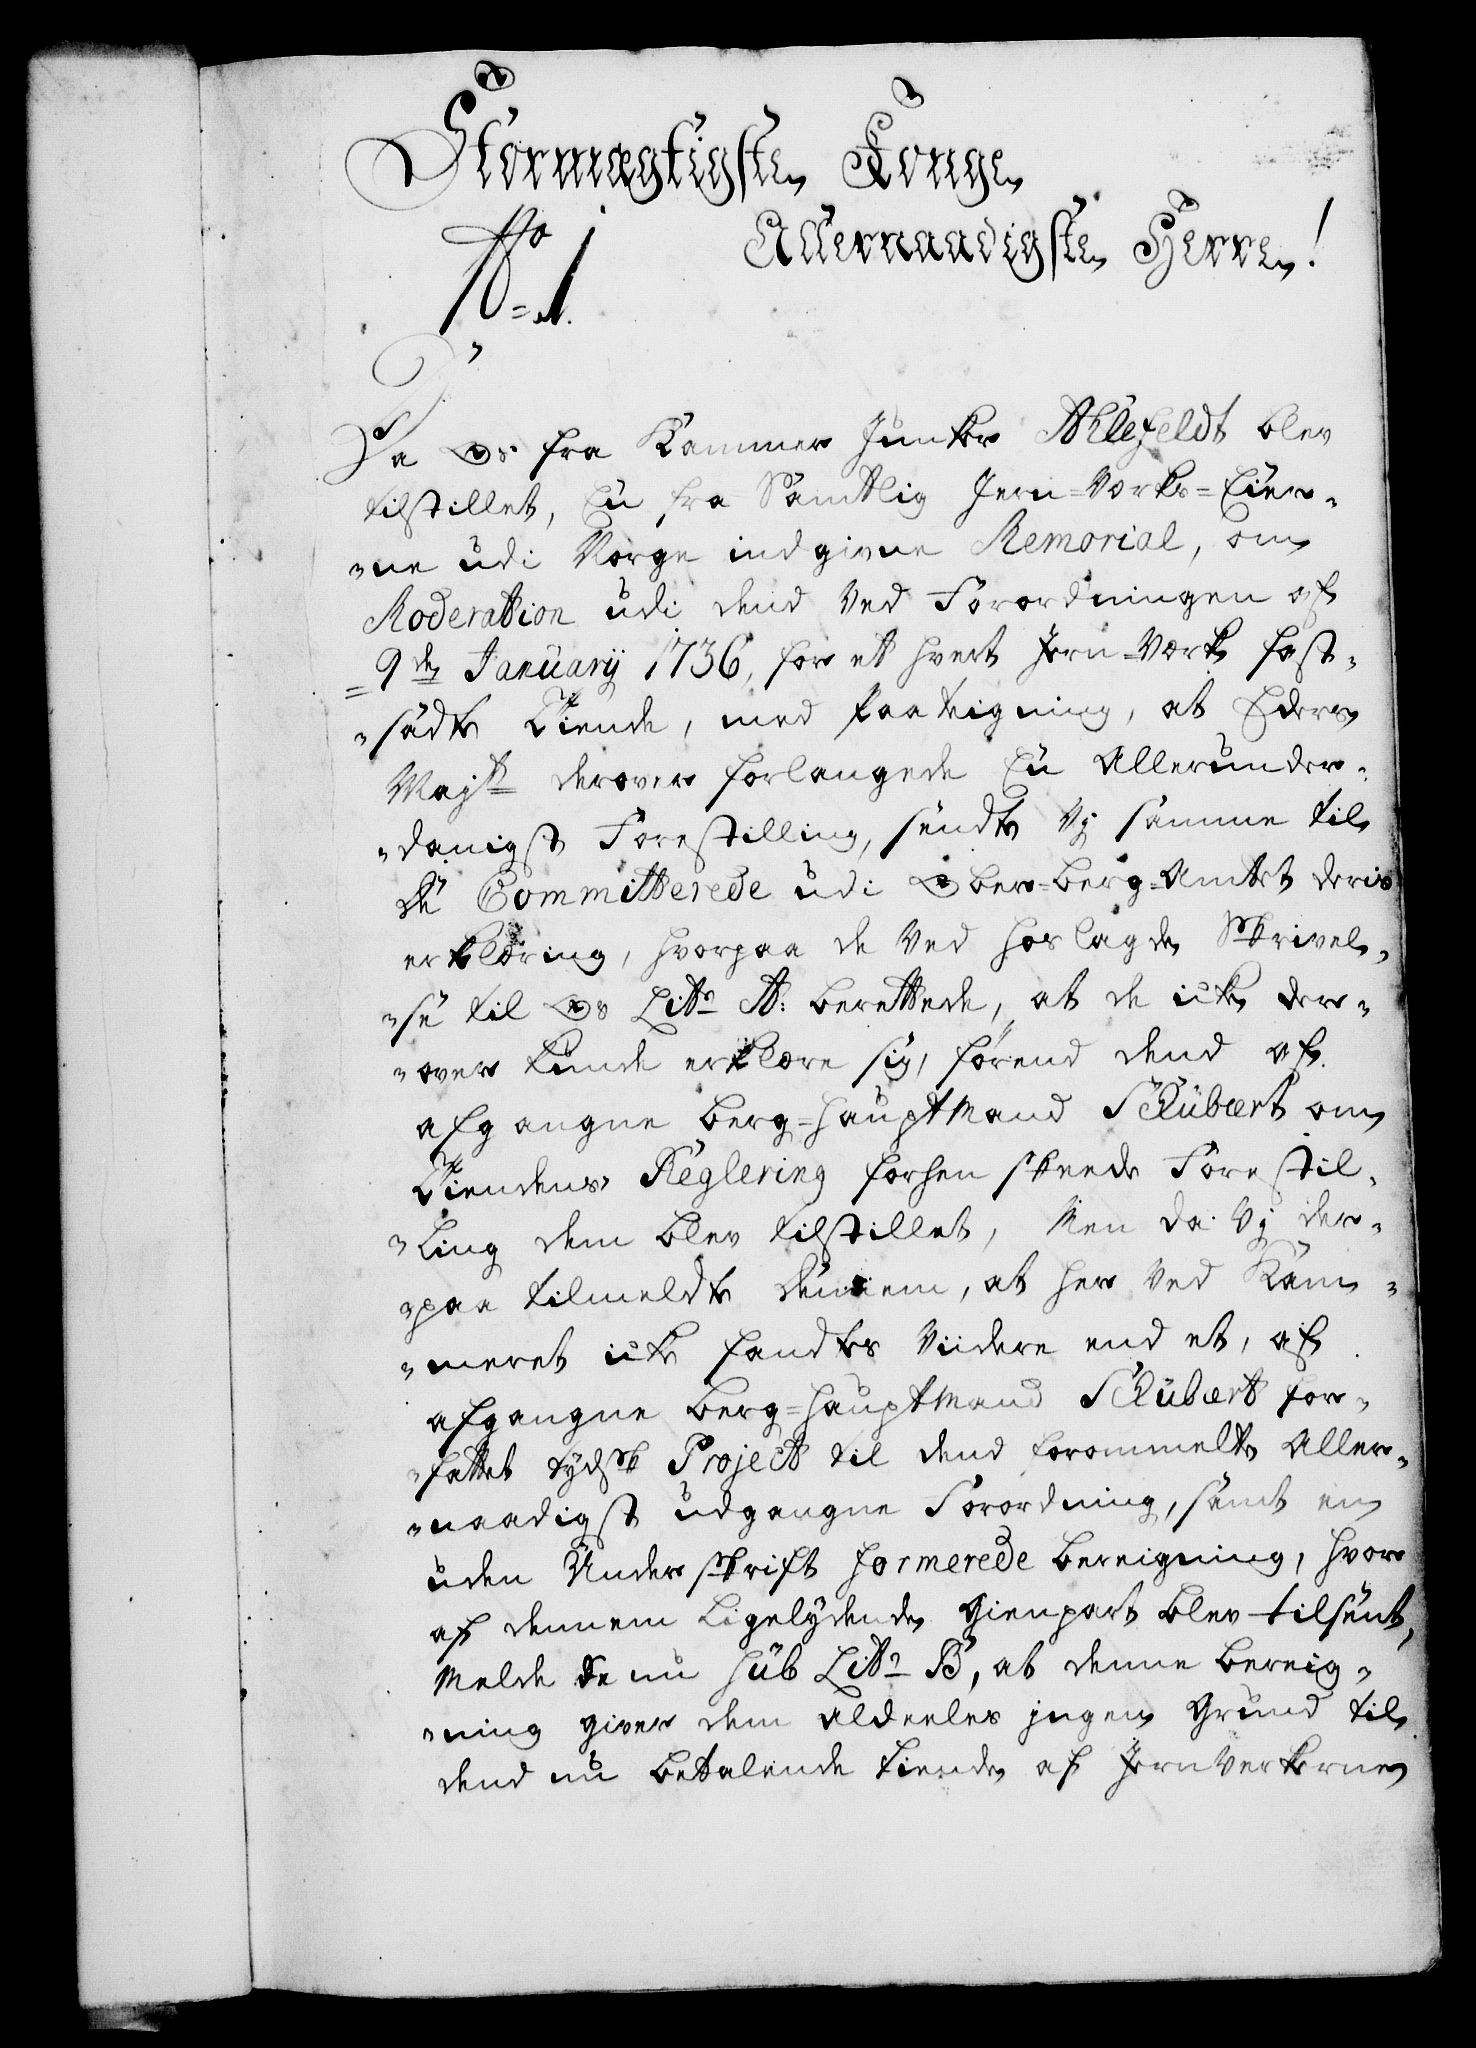 Stormægtigste Konge,
No 1.
Allernaadigste Herre!
Da Os fra Kammer Junker Ahlefeldt blev
tilstillet, En fra Samtlig Jern=Værks=Eier¬
¬ne udi Norge indgivne Memorial, om
Moderation udi dend Ved Forordningen af
9de Januarij 1736, for et hvert Jern=Værk fast¬
¬sadte Tiende, med Paateigning, at Eders
Majts derover forlangede En Allerunder¬
¬danigst Forestilling, sendte Vj samme til
de Committerede udi Ober=berg=Amtet deris
erklæring, hvorpaa de Ved hoslagde Skrivel¬
¬se til Os Litra A: berettede, at de icke der¬
¬over kunde erklære sig, førend dend af
afgangne berg=hauptMand Schubært om
Tiendens Reglering forhen skeede Forestil¬
¬ling dem blev tilstillet, Men da Vj der¬
¬paa tilmeldte dennem, at her Ved Kam¬
¬meret icke fandtes Viidere end et, af
afgangne berg=hauptMand Schubært for¬
¬fattet tydsk Project til dend forommelte Aller¬
¬naadigst udgangne Forordning, samt en
uden Underskrift formerede bereigning, hvor
af dennem Ligelydende Gienpart blev tilsent,
Melde de nu Sub Litra B, at denne bereig¬
¬ning giver dem aldeeles jngen Grund til
dend nu betalende tiende af JernVerkerne